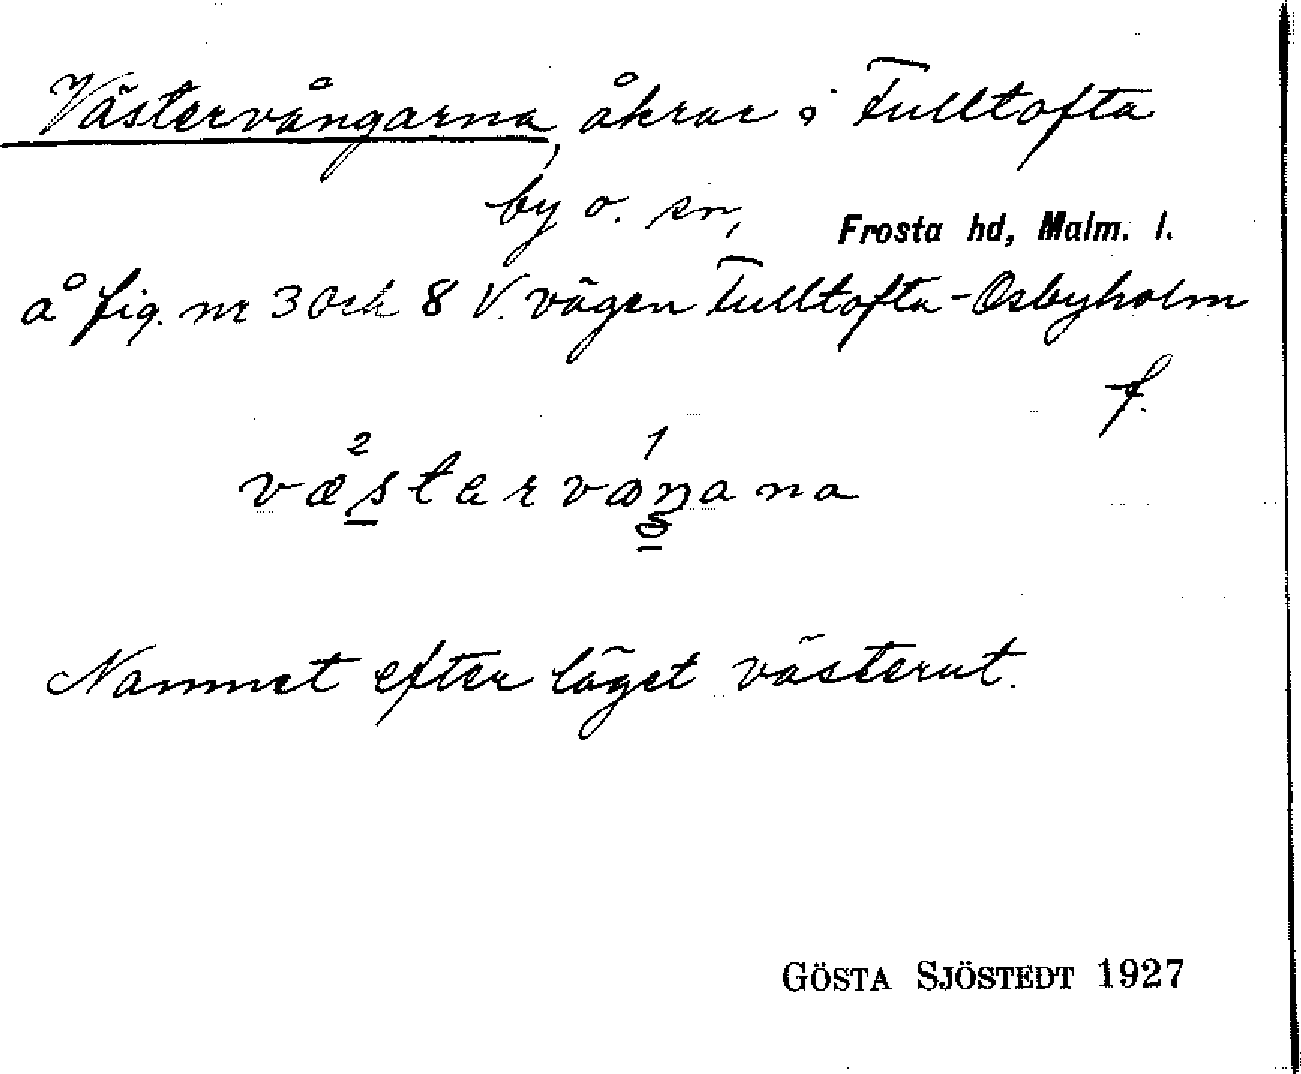 Västervångarna, åkrar i Fulltofta
by o. sn, Frosta hd, Malm. l.
å fig. nr 3 och 8 V. vägen Fulltofta-Osbyholm
f.
Namnet efter läget västerut.
GÖSTA SJÖSTEDT 1927